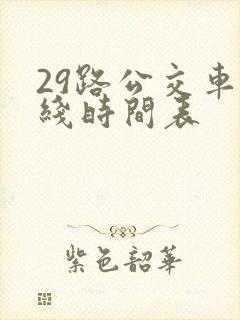 29路公交车
綫時間表
紫色韶華